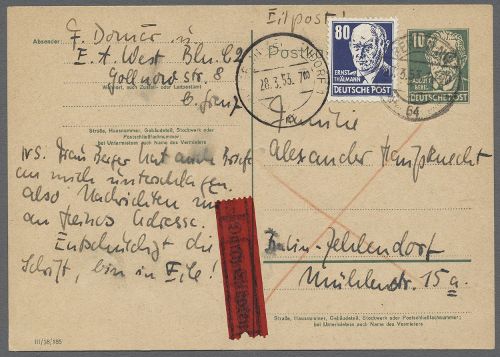 Eilpost!
Absender:
F. Domår
E. A. West Bln. C2
Gollnowstr. 8
Wohnort, auch Zustell- oder Leitpostamt
b. Franz
Straße, Hausnummer, Gebäudeteil, Stockwerk oder
Postschließfachnummer;
bei Untermietern auch Name des Vermieters
NS. Frau Berger hat auch Briefe
an mich unterschlagen.
also Nachrichten nur
an Heinos Adresse.
Entschuldigt die
Schrift, bin in Eile!
III/18/185
Postkarte
28.3.53
80
ERNST THÄLMANN
DEUTSCHE POST
10
AUGUST BEBEL
DEUTSCHE POST
64
Familie
Alexander
Berlin-Zehlendorf
Mühlenstr. 15a.
Straße, Hausnummer, Gebäudeteil, Stockwerk oder Postschließfachnummer;
bei Untermietern auch Name des Vermieters